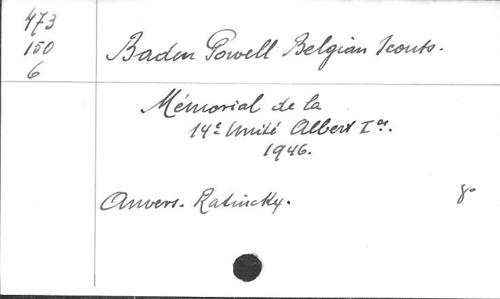 473
150
6
Baden Powell Belgian Scouts.
Mémorial de la
14e Unité Albert Ier.
1946.
Anvers. Ratinckx.
8o